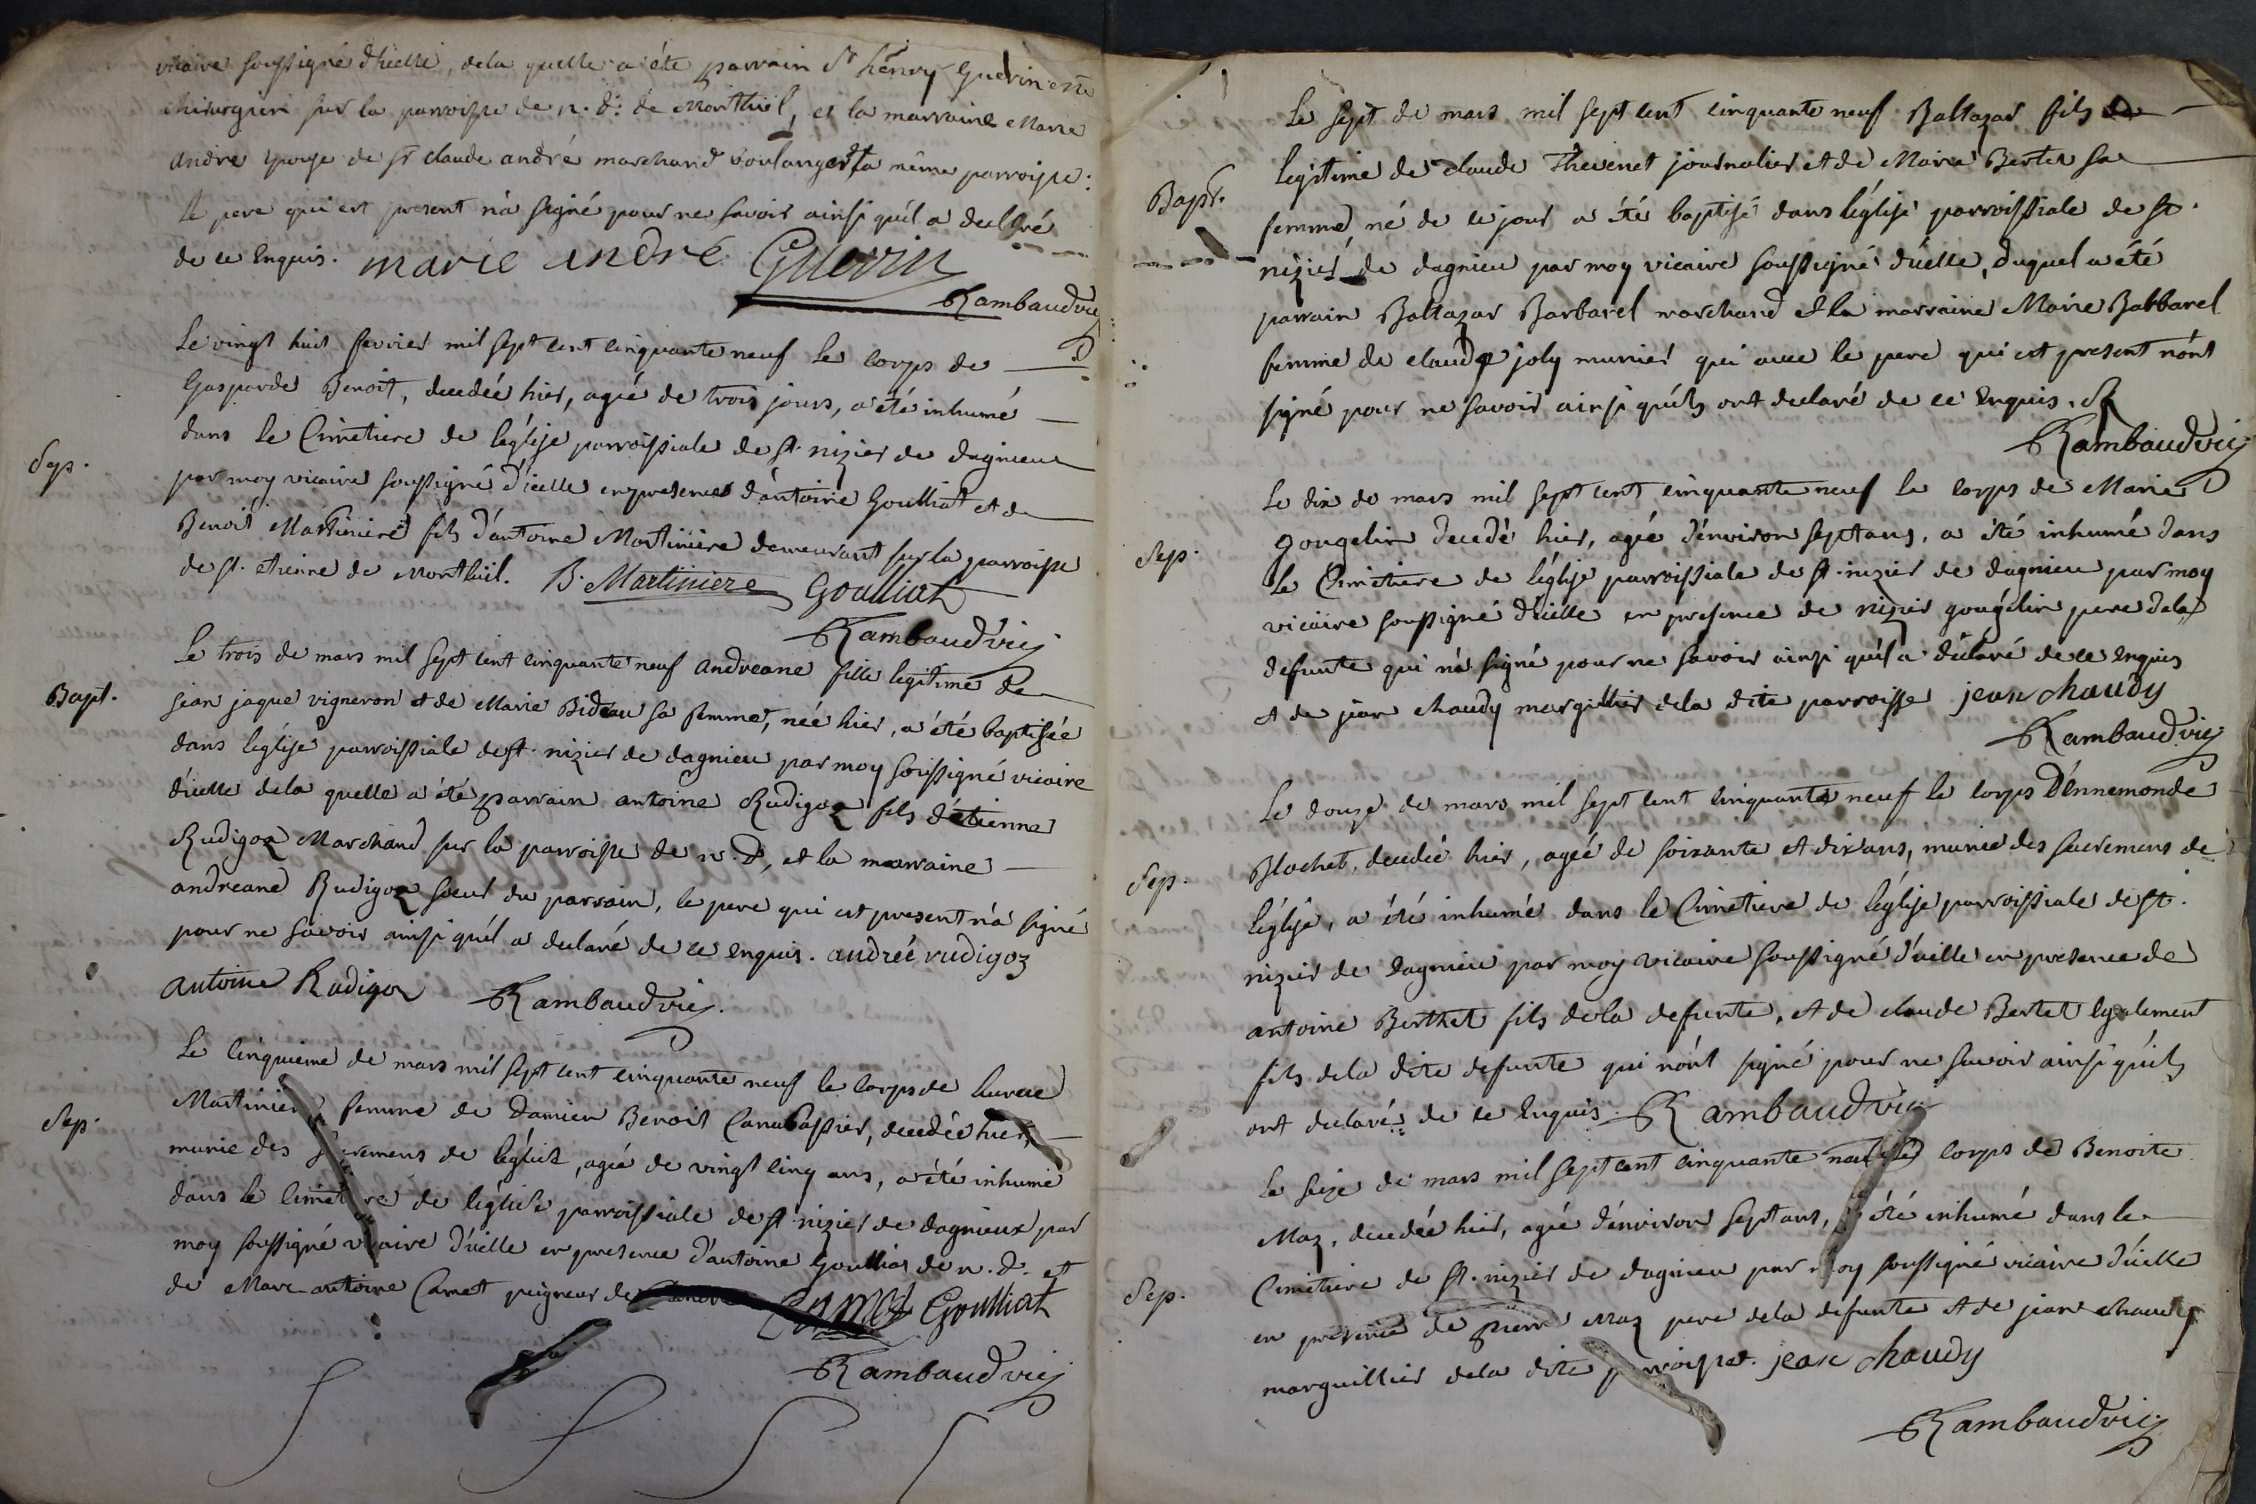 vicaire soussigné d'icelle, dela quelle a été parrain Sr henry Guerin
chirurgien sur la parroisse de n. d. de Montluel, et la marraine Marie
andré epouse de sr claude andré marchand boulanger la même parroisse.
le pere qui est present n'a signé pour ne savoir ainsi qu'il a declaré
de ce enquis. marie andré Guerin
Rambaud vic
Le vingt huit fevrier mil sept cent cinquante neuf le corps de
Gasparde Benoit, decedée hier, agée de trois jours, a été inhumé
dans le Cimetiere de l'église parroissiale de st. nizier de dagnieu
Sep.
par moy vicaire soussigné d'icelle en presence d'antoine Goulliat et de
Benoit Martiniere fils d'antoine Martiniere demeurant sur la parroisse
de st. etienne de Montluil. B. Martiniere Goulliat
Rambaud vic
Le trois de mars mil sept cent cinquante neuf andreane fille legitime de
Bapt.
jean jaque vigneron et de Marie Bideau sa femme, née hier, a été baptisée
dans l'église parroissiale de st. nizier de dagnieu par moy soussigné vicaire
d'icelle dela quelle a été parrain antoine Rudigoz fils d'étienne
Rudigoz Marchand sur la parroisse de n. d, et la marraine
andreane Rudigoz soeur du parrain, le pere qui est present n'a signé
pour ne savoir ainsi qu'il a declaré de ce enquis. andreé rudigoz
antoine Rudigoz Rambaud vic.
Le cinquieme de mars mil sept cent cinquante neuf le corps de
Sep.
Martiniere femme de Damien Benoit, decedée hier,
munie des sacremens de l'église, agée de vingt cinq ans, a été inhumé
dans le cimetiere de l'église parroissiale de st nizier de dagnieux par
moy soussigné vicaire d'icelle en presence d'antoine Goulliat de n. d. et
de Marc antoine Camet peigneur de Camet Goulliat
Rambaud vic
Le sept de mars mil sept cent cinquante neuf Baltazar fils
legitime de claude Thevenet journalier et de Marie Berter sa
Bapt.
femme, né de ce jour a été baptisé dans l'église parroissiale de st.
nizier de dagnieu par moy vicaire soussigné d'icelle, duquel a été
parrain Baltazar Barbarel marchand et la marraine Marie Babbarel
femme de claude joly munier qui avec le pere qui est present n'ont
signé pour ne savoir ainsi qu'ils ont declaré de ce enquis.
Rambaud vic
Le dix de mars mil sept cent cinquante neuf le corps de Marie
gougelin decedé hier, agée d'environ sept ans, a été inhumé dans
Sep.
le Cimetiere de l'église parroissiale de st. nizier de dagnieu par moy
vicaire soussigné d'icelle en presence de nizier gougelin pere dela
defunte qui n'a signé pour ne savoir ainsi qu'il a declaré de ce enquis
et de jean chaudy margillier dela dite parroisse jean chaudy
Rambaud vic
Le douze de mars mil sept cent cinquante neuf le corps D'ennemonde
Sep.
Blachet, decedée hier, agée de soixante et dix ans, munie des sacremens de
l'église, a été inhumé dans le Cimetiere de l'église parroissiale de st.
nizier de Dagnieu par moy vicaire soussigné d'icelle en presence de
antoine Berthet fils dela defunte, et de claude Bertet egalement
fils dela dite defunte qui n'ont signé pour ne savoir ainsi qu'ils
ont declaré de ce enquis. Rambaud vic
Le seize de mars mil sept cent cinquante neuf le corps de Benoite
Maz, decedée hier, agée d'environ sept ans, a été inhumé dans le
Sep.
Cimetiere de st. nizier de dagnieu par moy soussigné vicaire d'icelle
en presence de pierre Maz pere dela defunte et de jean chaudy
marguillier dela dite parroisse. jean chaudy
Rambaud vic